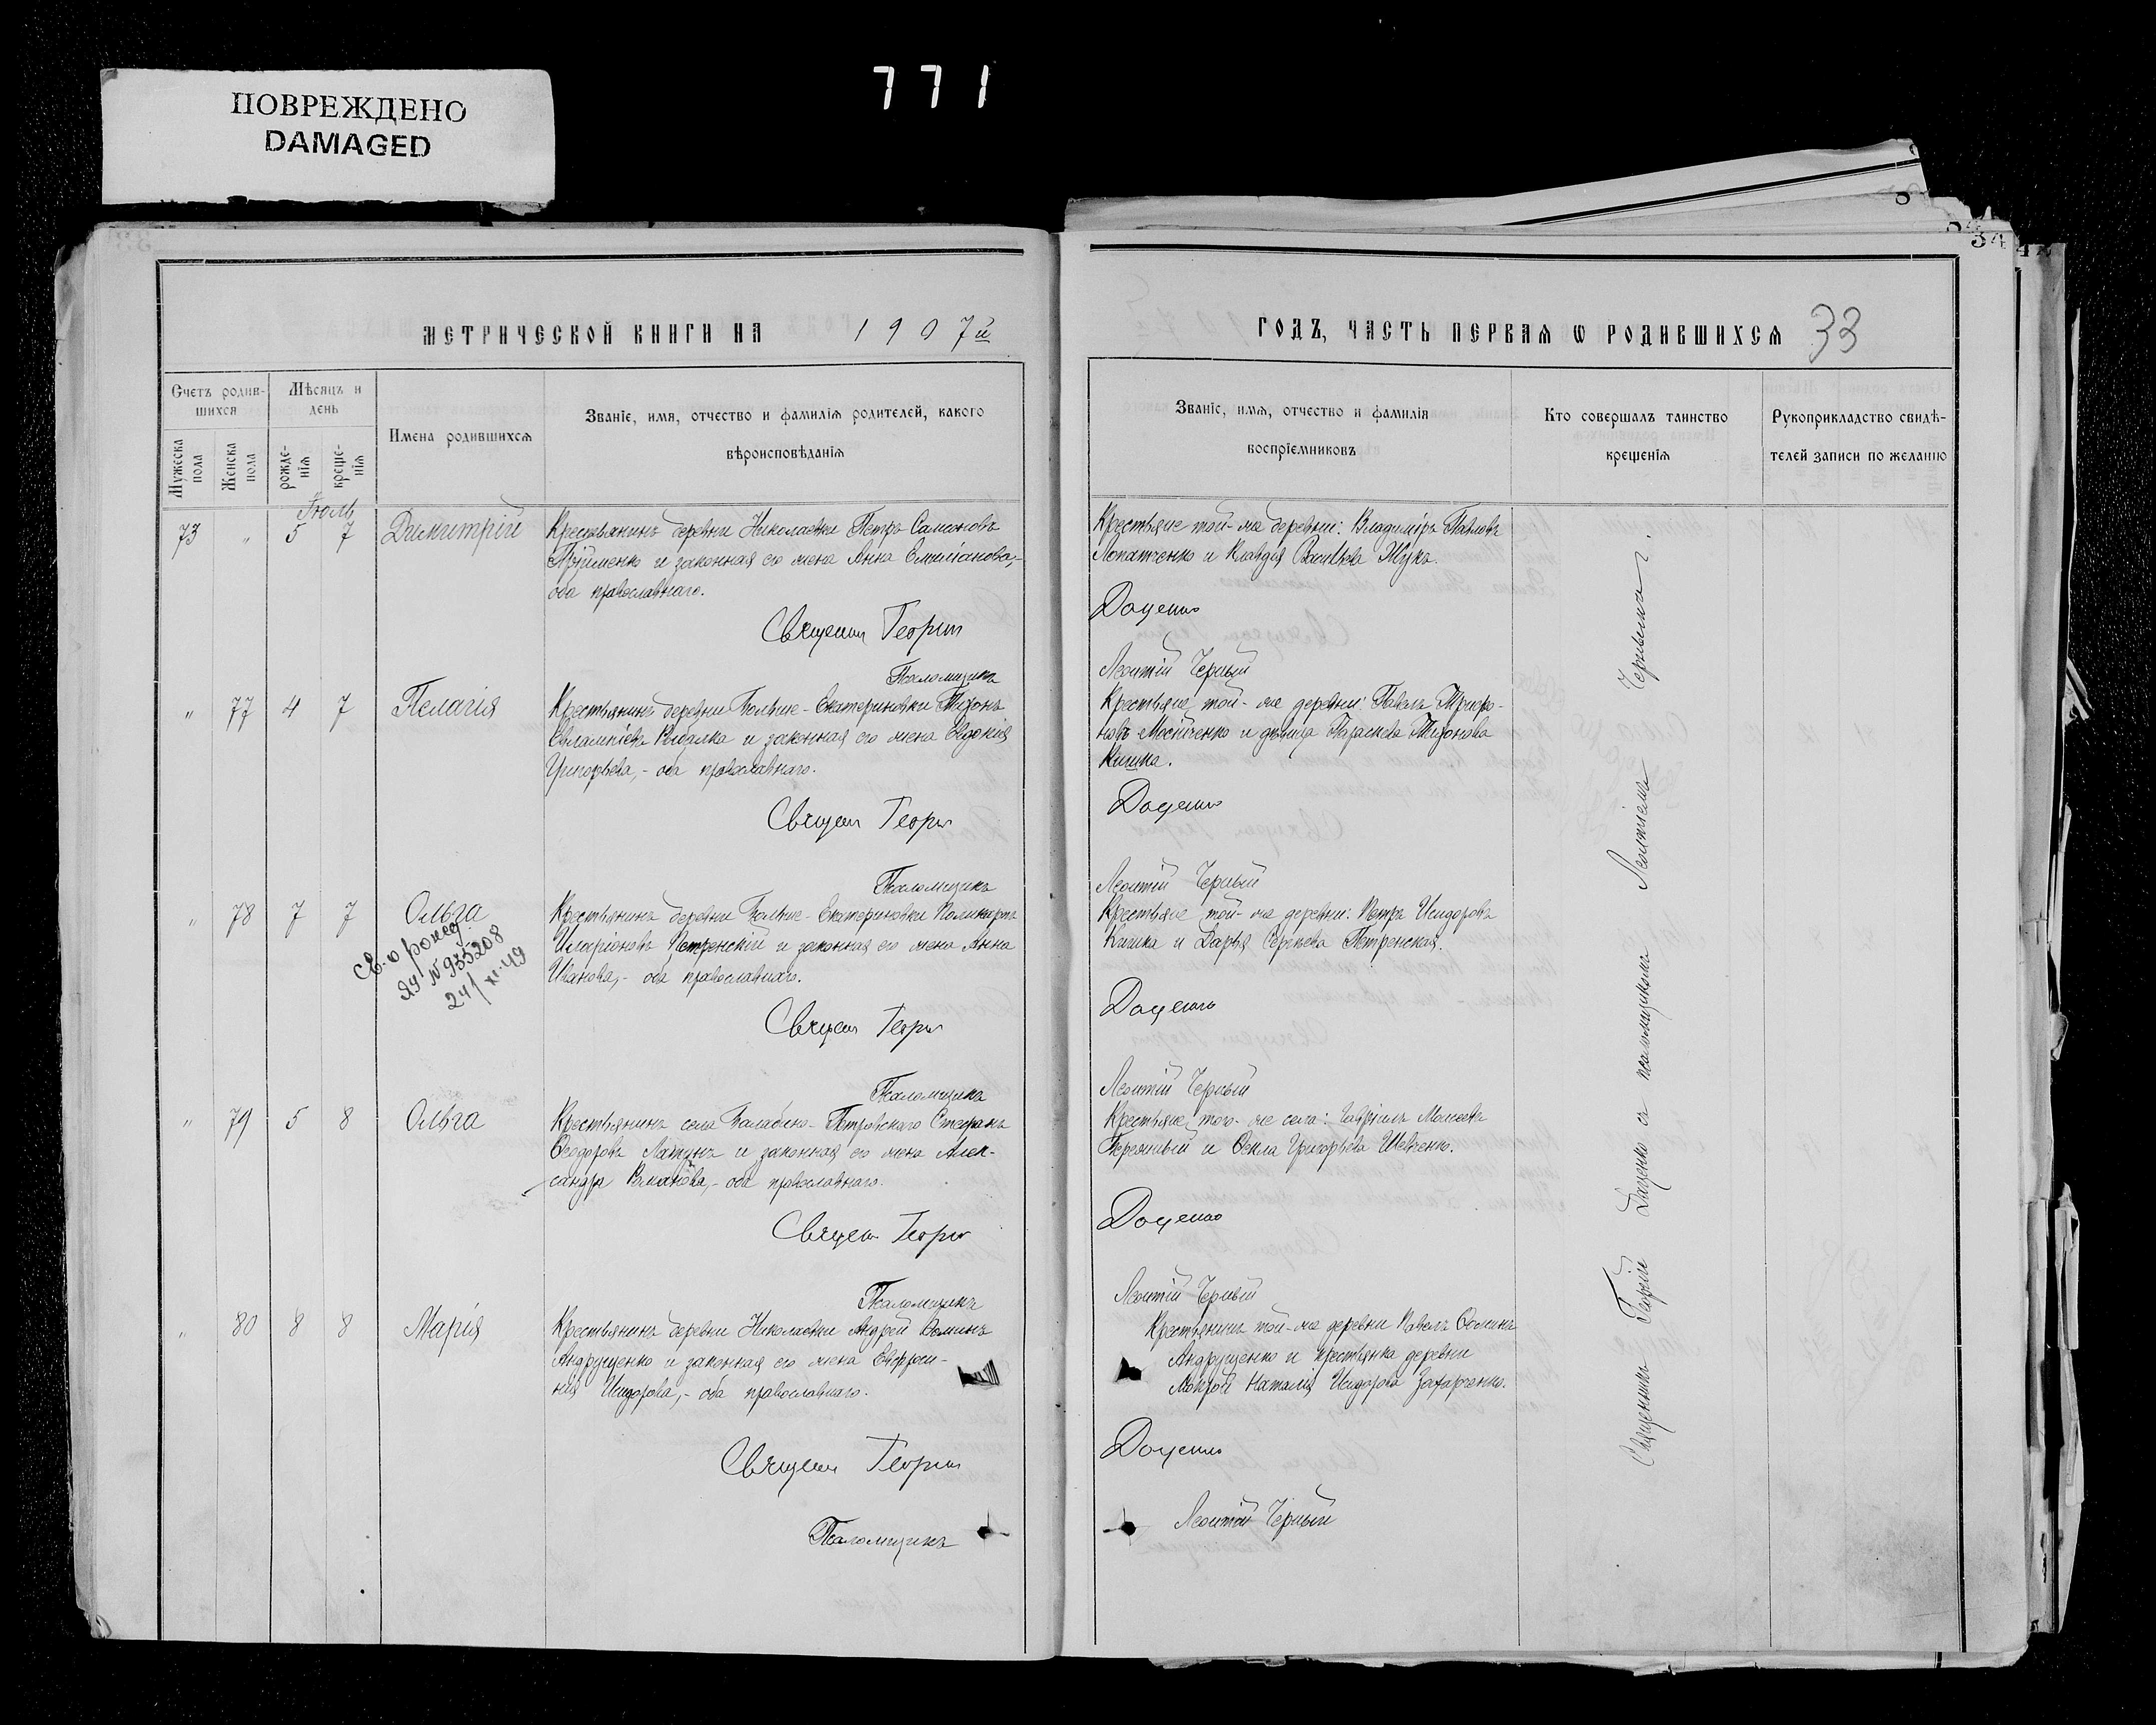 ПОВРЕЖДЕНО
DAMAGED
771
8
34
МЕТРИЧЕСКОЙ КНИГИ НА 1907й
Счетъ родив-
шихся
Мѣсяцъ и
день
Имена родившихся
Званіе, имя, отчество и фамилія родителей, какого
вѣроисповѣданія
Мужеска
пола
Женска
пола
рожде-
нія
креще-
нія
Іюль
73 " 5 7 Димитрій
Крестьянинъ деревни Николаевки Петръ Самсоновъ
Прійменко и законная его жена Анна Емиліанова,-
оба православнаго.
Священ Георгій
Псаломщикъ
" 77 4 7 Пелагія
Крестьянинъ деревни Больше-Екатериновки Тихонъ
Евлампіевъ и законная его жена Евдокія
Григорьева,- оба православнаго.
Священ Георгій
Псаломщикъ
" 78 7 7 Ольга
Св-о рожд.
ЯУ № 935208
24/XI-49
Крестьянинъ деревни Больше-Екатериновки Поликарпъ
Иларіоновъ Петренскій и законная его жена Анна
Иванова,- оба православнаго.
Священ Георгій
Псаломщикъ
" 79 5 8 Ольга
Крестьянинъ села Балабино-Петровскаго Стефанъ
Ѳеодоровъ и законная его жена Алек-
сандра - оба православнаго.
Священ Георгій
Псаломщикъ
" 80 8 8 Марія
Крестьянинъ деревни Николаевки Андрей Ѳоминъ
Андрущенко и законная его жена Евфроси-
нія Исидорова,- оба православнаго.
Священ Георгій
Псаломщикъ
ГОДЪ, ЧАСТЬ ПЕРВАЯ Ѡ РОДИВШИХСЯ 33
Званіе, имя, отчество и фамилія
воспріемниковъ
Кто совершалъ таинство
крещенія
Рукоприкладство свидѣ-
телей записи по желанію
Крестьяне той-же деревни: Владиміръ Павловъ
Лопатченко и Клавдія Васильева Жукъ.
Доценко
Леонтій Черный
Крестьяне той-же деревни: Павелъ Трифо-
новъ Мосійченко и дѣвица Параскева Тихонова
Кишка.
Доценко
Леонтій Черный
Крестьяне той-же деревни: Петръ Исидоровъ
Кишка и Дарья Сергѣева Петренская.
Доценко
Леонтій Черный
Крестьяне того-же села: Гавріилъ Моисеевъ
Бережный и Ѳекла Григорьева Шевченко.
Доценко
Леонтій Черный
Крестьянинъ той-же деревни Павелъ Ѳоминъ
Андрущенко и крестьянка деревни
Мокрой Наталія Исидорова Захарченко.
Доценко
Леонтій Черный
Священникъ Георгій Доценко съ псаломщикомъ Леонтіемъ Чернымъ.